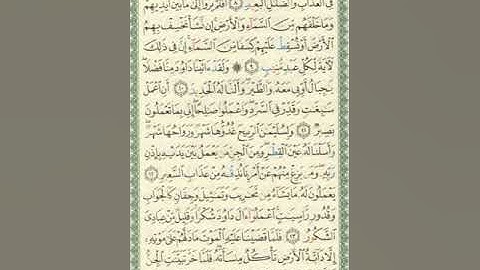 فِى ٱلْعَذَابِ وَٱلضَّلَـٰلِ ٱلْبَعِيدِ ٨ أَفَلَمْ يَرَوْا۟ إِلَىٰ مَا بَيْنَ أَيْدِيهِمْ
وَمَا خَلْفَهُم مِّنَ ٱلسَّمَآءِ وَٱلْأَرْضِ إِن نَّشَأْ نَخْسِفْ بِهِمُ
ٱلْأَرْضَ أَوْ نُسْقِطْ عَلَيْهِمْ كِسَفًا مِّنَ ٱلسَّمَآءِ إِنَّ فِى ذَٰلِكَ
لَـَٔايَةً لِّكُلِّ عَبْدٍ مُّنِيبٍ ٩ ۞ وَلَقَدْ ءَاتَيْنَا دَاوُۥدَ مِنَّا فَضْلًا
يَـٰجِبَالُ أَوِّبِى مَعَهُۥ وَٱلطَّيْرَ وَأَلَنَّا لَهُ ٱلْحَدِيدَ ١٠ أَنِ ٱعْمَلْ
سَـٰبِغَـٰتٍ وَقَدِّرْ فِى ٱلسَّرْدِ وَٱعْمَلُوا۟ صَـٰلِحًا إِنِّى بِمَا تَعْمَلُونَ
بَصِيرٌ ١١ وَلِسُلَيْمَـٰنَ ٱلرِّيحَ غُدُوُّهَا شَهْرٌ وَرَوَاحُهَا شَهْرٌ
وَأَسَلْنَا لَهُۥ عَيْنَ ٱلْقِطْرِ وَمِنَ ٱلْجِنِّ مَن يَعْمَلُ بَيْنَ يَدَيْهِ بِإِذْنِ
رَبِّهِۦ وَمَن يَزِغْ مِنْهُمْ عَنْ أَمْرِنَا نُذِقْهُ مِنْ عَذَابِ ٱلسَّعِيرِ ١٢
يَعْمَلُونَ لَهُۥ مَا يَشَآءُ مِن مَّحَـٰرِيبَ وَتَمَـٰثِيلَ وَجِفَانٍ كَٱلْجَوَابِ
وَقُدُورٍ رَّاسِيَـٰتٍ ٱعْمَلُوٓا۟ ءَالَ دَاوُۥدَ شُكْرًا وَقَلِيلٌ مِّنْ عِبَادِىَ
ٱلشَّكُورُ ١٣ فَلَمَّا قَضَيْنَا عَلَيْهِ ٱلْمَوْتَ مَا دَلَّهُمْ عَلَىٰ مَوْتِهِۦٓ
إِلَّا دَآبَّةُ ٱلْأَرْضِ تَأْكُلُ مِنسَأَتَهُۥ فَلَمَّا خَرَّ تَبَيَّنَتِ ٱلْجِنُّ